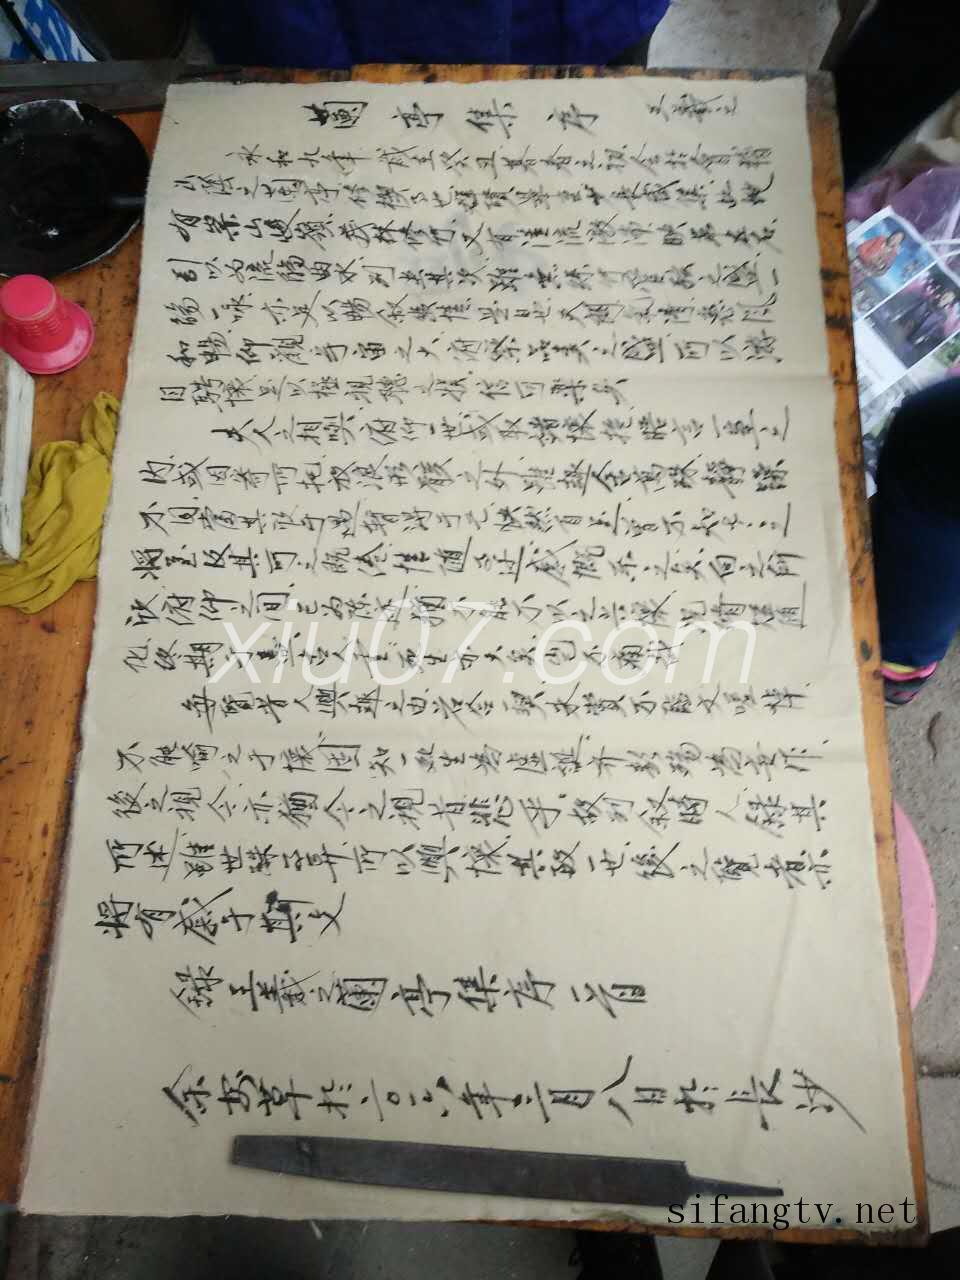 蘭亭集序 王羲之
永和九年歲在癸丑暮春之初會於會稽
山陰之蘭亭修禊事也羣賢畢至少長咸集此地
有崇山峻嶺茂林修竹又有清流激湍映帶左右
引以為流觴曲水列坐其次雖無絲竹管弦之盛一
觴一詠亦足以暢敘幽情是日也天朗氣清惠風
和暢仰觀宇宙之大俯察品類之盛所以遊
目騁懷足以極視聽之娛信可樂也
夫人之相與俯仰一世或取諸懷抱晤言一室之
內或因寄所託放浪形骸之外雖趣舍萬殊靜躁
不同當其欣于所遇暫得于己快然自足不知老之
將至及其所之既倦情隨事遷感慨系之矣向之所
欣俯仰之間已為陳跡猶不能不以之興懷況修短隨
化終期于盡古人云死生亦大矣豈不痛哉
每覽昔人興感之由若合一契未嘗不臨文嗟悼
不能喻之于懷固知一死生為虛誕齊彭殤為妄作
後之視今亦猶今之視昔悲乎故列敘時人錄其
所述雖世殊事異所以興懷其致一也後之覽者亦
將有感于斯文
錄王羲之蘭亭集序一首
於二〇一六年三月八日於長沙
xiu07.com
sifangtv.net